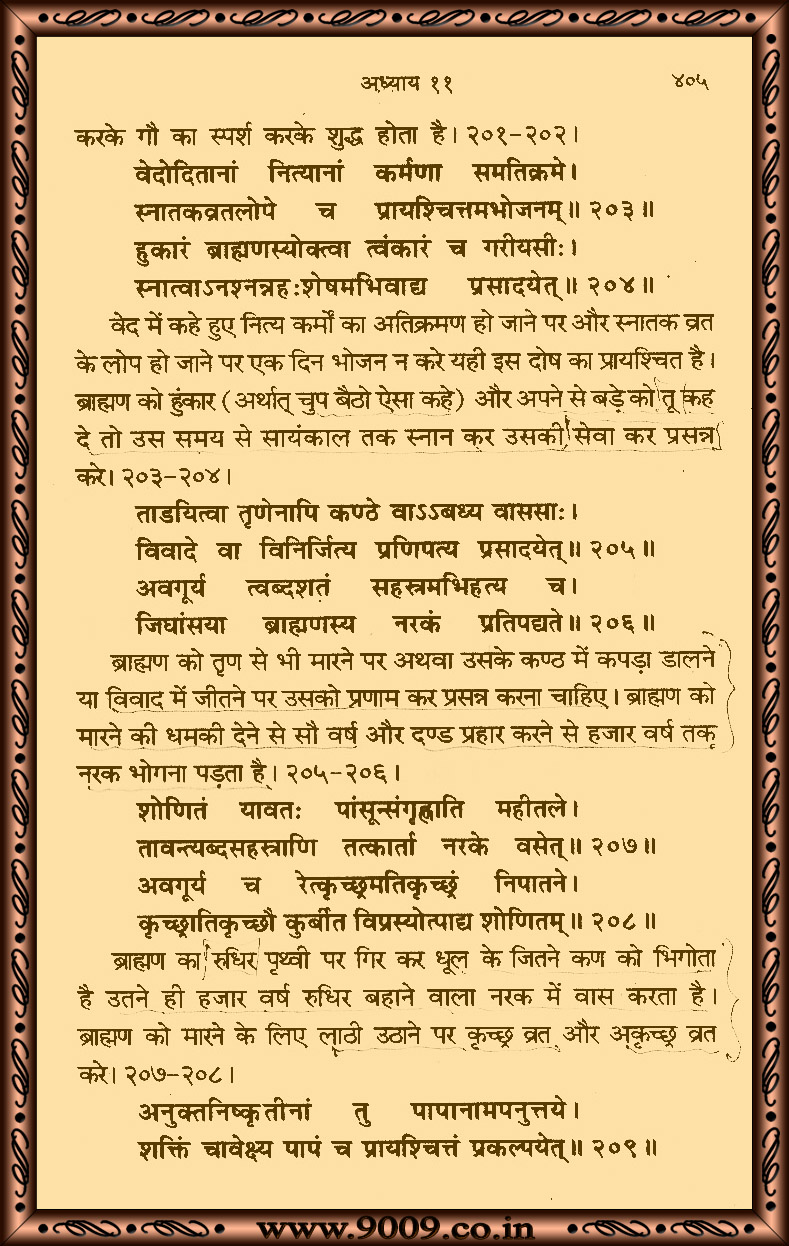 अध्याय ११ ४०५
करके गौ का स्पर्श करके शुद्ध होता है। २०१-२०२।
वेदोदितानां नित्यानां कर्मणा समतिक्रमे।
स्नातकव्रतलोपे च प्रायश्चित्तमभोजनम्॥ २०३॥
हुकारं ब्राह्मणस्योक्त्वा त्वंकारं च गरीयसीः।
स्नात्वाऽनश्नन्नहःशेषमभिवाद्य प्रसादयेत्॥ २०४॥
वेद में कहे हुए नित्य कर्मों का अतिक्रमण हो जाने पर और स्नातक व्रत
के लोप हो जाने पर एक दिन भोजन न करे यही इस दोष का प्रायश्चित है।
ब्राह्मण को हुंकार (अर्थात् चुप बैठो ऐसा कहे) और अपने से बड़े को तू कह
दे तो उस समय से सायंकाल तक स्नान कर उसकी सेवा कर प्रसन्न
करे। २०३-२०४।
ताडयित्वा तृणेनापि कण्ठे वाऽऽबध्य वाससाः।
विवादे वा विनिर्जित्य प्रणिपत्य प्रसादयेत्॥ २०५॥
अवगूर्य त्वब्दशतं सहस्त्रमभिहत्य च।
जिघांसया ब्राह्मणस्य नरकं प्रतिपद्यते। २०६॥
ब्राह्मण को तृण से भी मारने पर अथवा उसके कण्ठ में कपड़ा डालने
या विवाद में जीतने पर उसको प्रणाम कर प्रसन्न करना चाहिए। ब्राह्मण को
मारने की धमकी देने से सौ वर्ष और दण्ड प्रहार करने से हजार वर्ष तक
नरक भोगना पड़ता है। २०५-२०६।
शोणितं यावतः पांसून्संगृह्णाति महीतले।
तावन्त्यब्दसहस्त्राणि तत्कार्ता नरके वसेत्॥ २०७॥
अवगूर्य च रेत्कृच्छ्रमतिकृच्छ्रं निपातने।
कृच्छ्रातिकृच्छ्रौ कुर्बीत विप्रस्योत्पाद्य शोणितम्॥ २०८॥
ब्राह्मण का रुधिर पृथ्वी पर गिर कर धूल के जितने कण को भिगोता
है उतने ही हजार वर्ष रुधिर बहाने वाला नरक में वास करता है।
ब्राह्मण को मारने के लिए लाठी उठाने पर कृच्छ्र व्रत और अकृच्छ्र व्रत
करे। २०७-२०८।
अनुक्तनिष्कृतीनां तु पापानामपनुत्तये।
शक्तिं चावेक्ष्य पापं च प्रायश्चित्तं प्रकल्पयेत्॥ २०९॥
www.9009.co.in